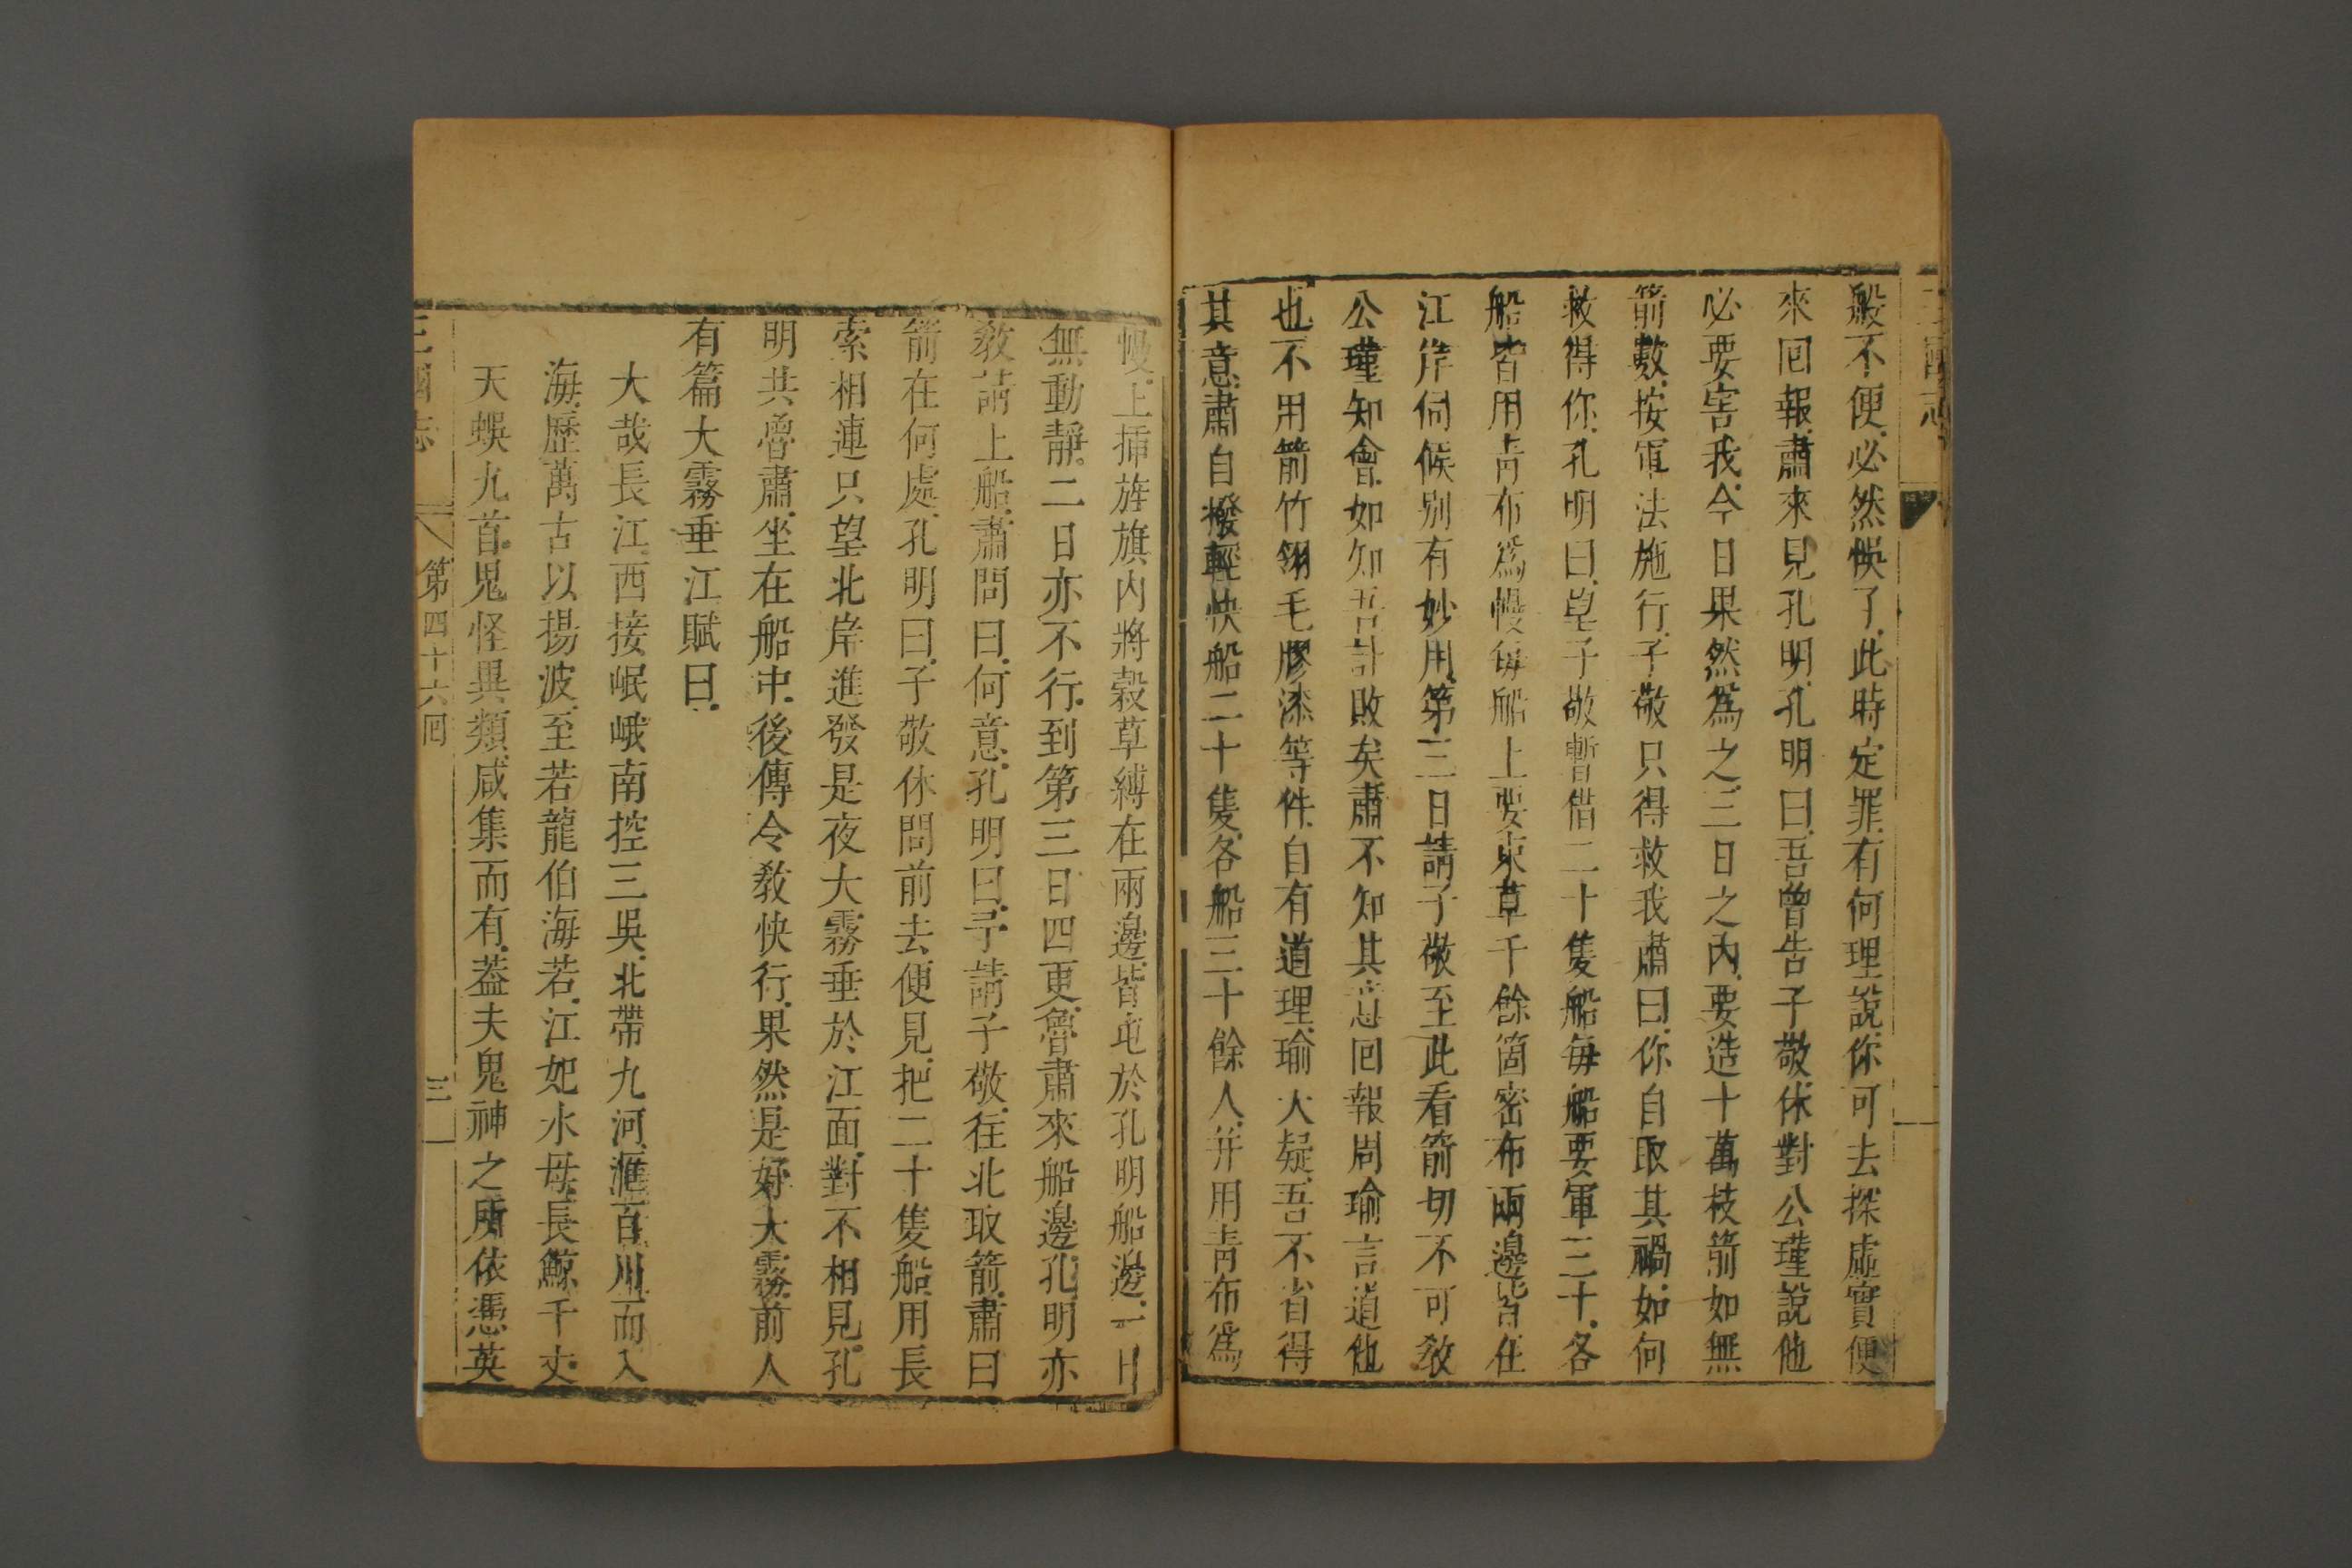 三國志
般不便必然悞了此時定罪有何理說你可去探虛實便
來回報肅來見孔明孔明曰吾曾告子敬休對公瑾說他
必要害我今日果然為之三日之內要造十萬枝箭如無
箭數按軍法施行子敬只得救我肅曰你自取其禍如何
救得你孔明曰望子敬暫借二十隻船每船要軍三十各
船皆用青布為幔每船上要束草千餘箇密布兩邊皆在
江岸伺候别有妙用第三日請子敬至此看箭切不可敎
公瑾知會如知吾計敗矣肅不知其意回報周瑜言道他
也不用箭竹翎毛膠漆等件自有道理瑜大疑吾不省得
其意肅自撥輕快船二十隻各船三十餘人并用青布為
幔上揷旌旗内將穀草縛在兩邊皆屯於孔明船邊一日
無動靜二日亦不行到第三日四更魯肅來船邊孔明亦
敎請上船肅問曰何意孔明曰寻請子敬往北取箭肅曰
箭在何處孔明曰子敬休問前去便見把二十隻船用長
索相連只望北岸進發是夜大霧垂於江面對不相見孔
明共魯肅坐在船中後傳令敎快行果然是好大霧前人
有篇大霧垂江賦曰
大哉長江西接岷峨南控三吳北帶九河滙百川而入
海歷萬古以揚波至若龍伯海若江妃水母長鯨千丈
天蜈九首鬼怪異類咸集而有葢夫鬼神之所依憑英
三國志
第四十六囘
三